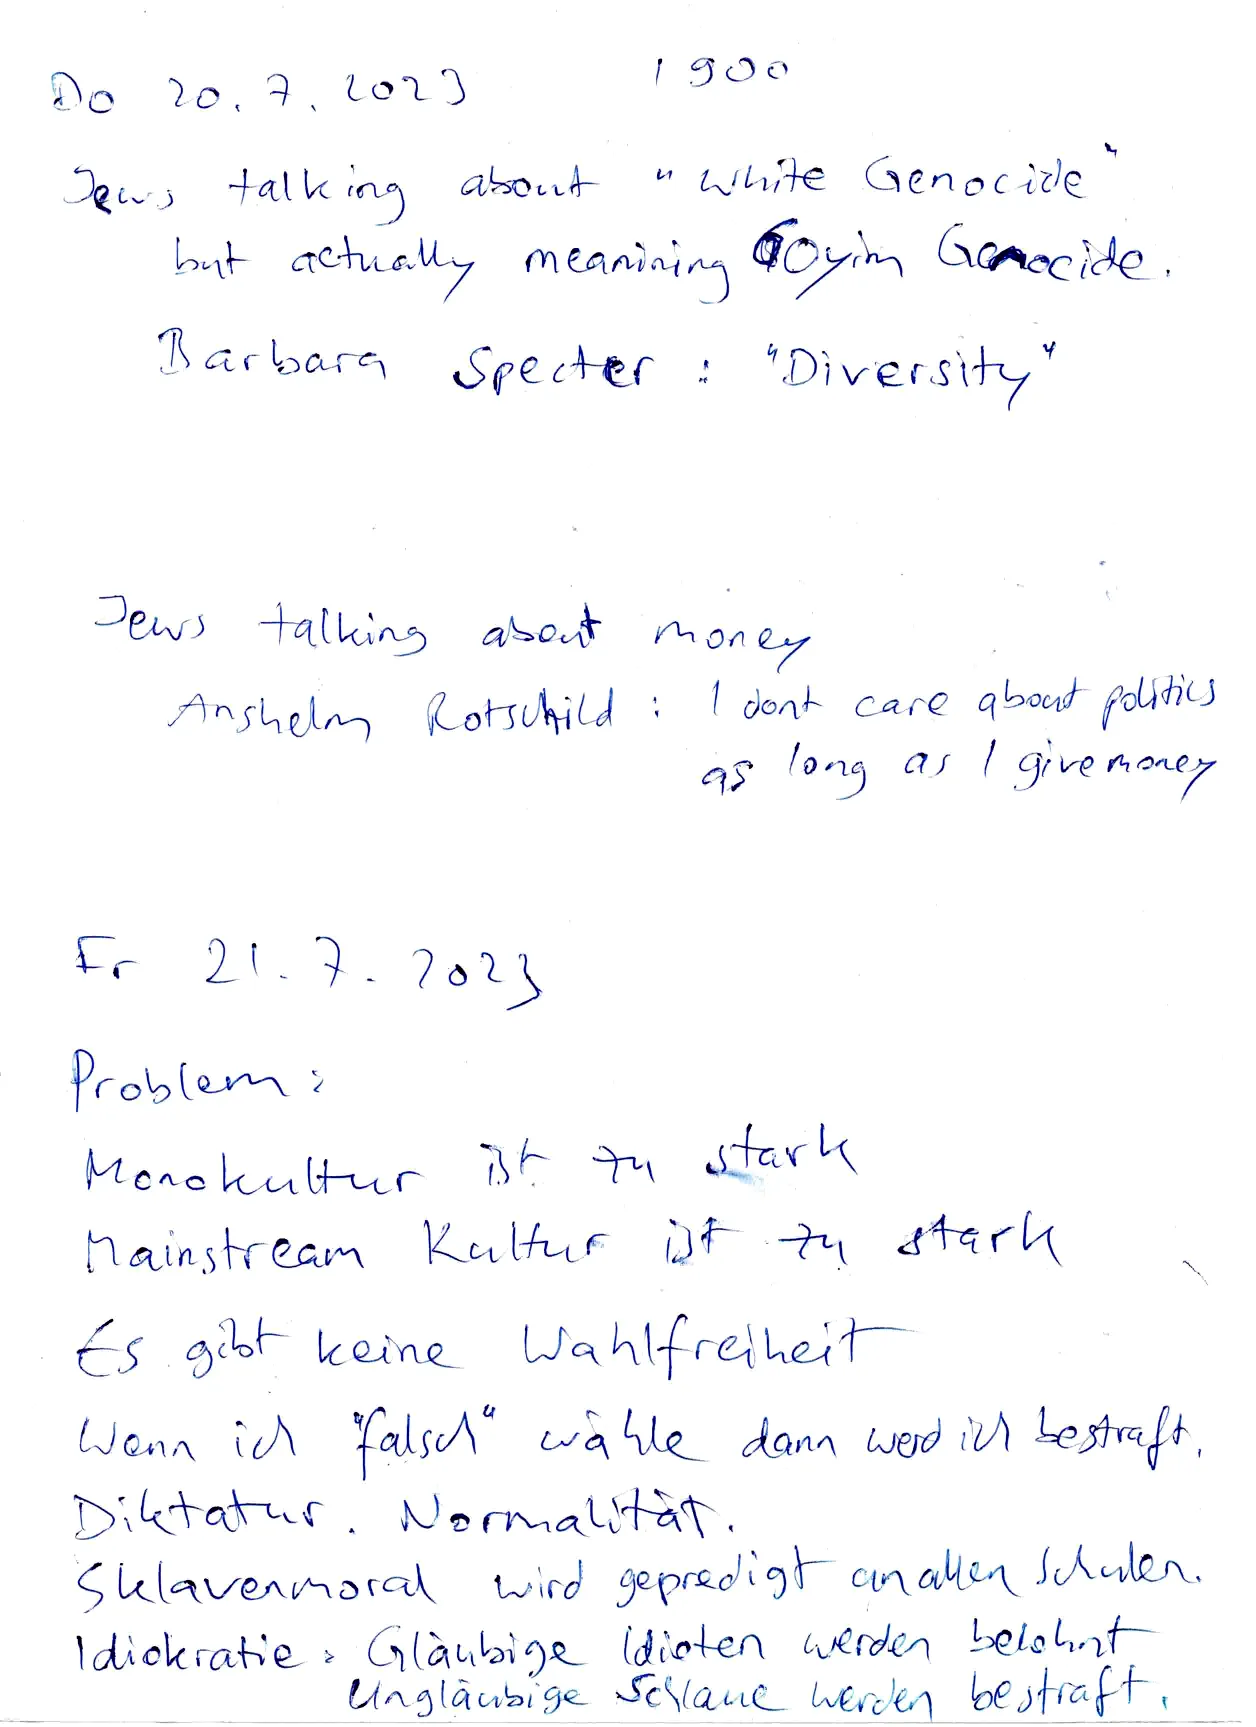 Do 20.7.2023 1900
Jews talking about "white Genocide"
but actually meanining Goyim Genocide.
Barbara Specter : "Diversity"
Jews talking about money
Anshelm Rotschild : I dont care about politics
as long as I give money
Fr 21.7.2023
Problem :
Monokultur ist zu stark
Mainstream Kultur ist zu stark
Es gibt keine Wahlfreiheit
Wenn ich "falsch" wähle dann werd ich bestraft.
Diktatur. Normalität.
Sklavenmoral wird gepredigt an allen Schulen.
Idiokratie : Gläubige Idioten werden belohnt
Ungläubige Schlaue werden bestraft.